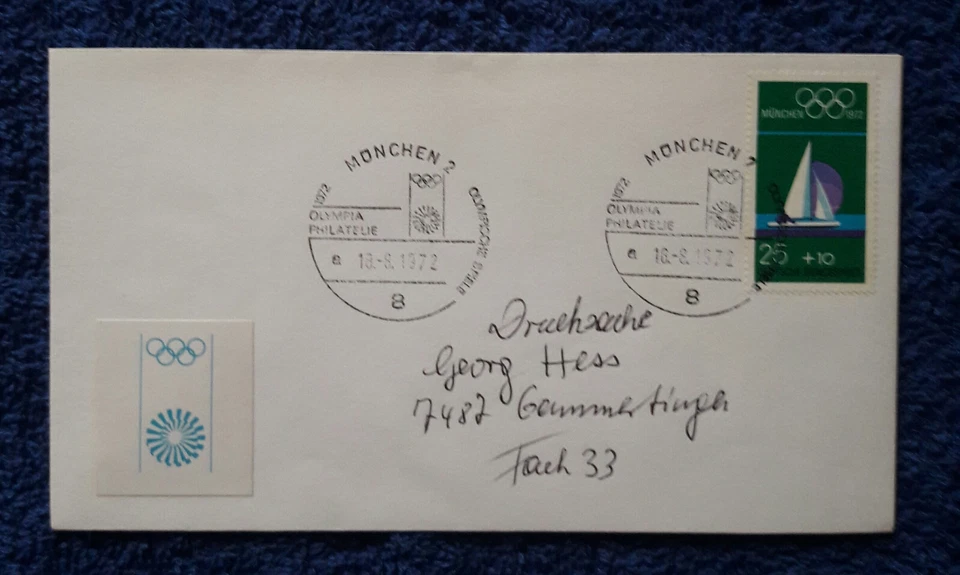 MÜNCHEN 2
1972
OLYMPISCHE SPIELE
OLYMPIA
PHILATELIE
e 18.-8.1972
8
MÜNCHEN 2
1972
OLYMPIA
PHILATELIE
e 18.-8.1972
8
MÜNCHEN 1972
25 +10
Drucksache
Georg Hess
7487 Gammertingen
Fach 33